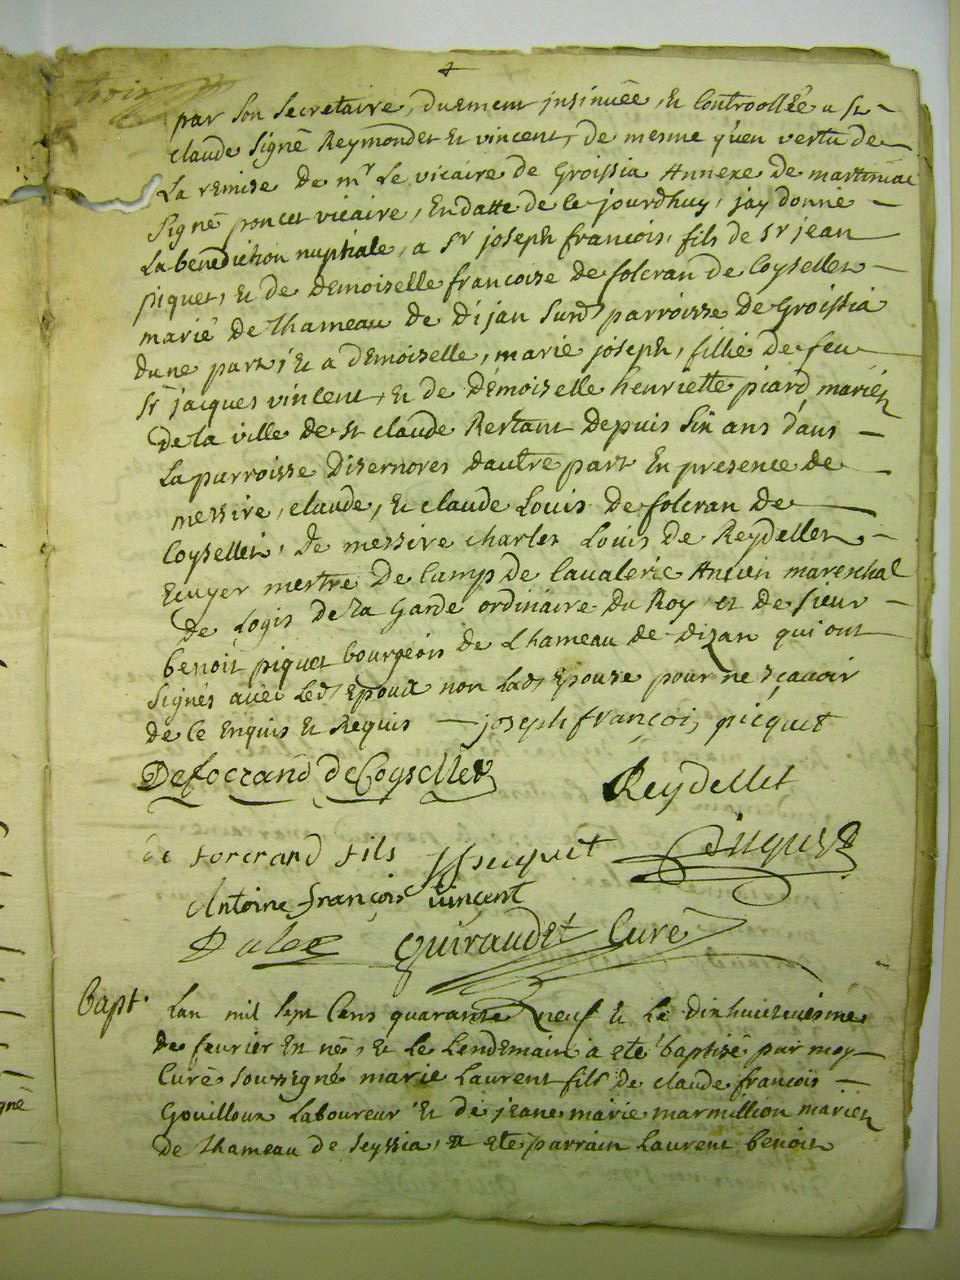 trois
par son secretaire, duement insinuée, et Controollée a st
claude signé Reymondet et vincent, de mesme qu'en vertu de
La remise de mr Le vicaire de Groissia Annexe de martinia
signé poncet vicaire, En datte de ce jourdhuy, jay donné
La benediction nuptiale, a sr joseph francois, fils de sr jean
piquet, et de demoiselle francoise de folcran de Coysellet
marié de lhameau de dijan surd parroisse de Groissia
dune part, et a demoiselle, marie joseph, fillie de feu
sr jacques vincent, et de démoiselle henriette picard mariés
de la ville de st claude Restant depuis six ans dans
La parroisse disernores dautre part En presence de
messire, claude, et claude Louis de folcran de
Coysellet, de messire charles Louis de Reydellet
Ecuyer mestre de Camp de Cavalerie Ancien mareschal
de Logis de la Garde ordinaire du Roy et de sieur
benoit piquet bourgeois de Lhameau de dizan qui ont
signés avec Led epoux non lad Epouse pour ne scavoir
de ce Enquis et Requis joseph françois picquet
Deforcrand de Coysellet Reydellet
de forcrand fils picquet
Antoine françois vincent
Dalex Guiraudet Curé
Bapt. Lan mil sept Cens quarante neuf et le dixhuictiesme
de fevrier En né, et le Lendemain a eté baptisé par moy
Curé soussegné marie Laurent fils de claude francois
Gouilloux Laboureur et de jeane marie marmillion mariés
de lhameau de seyssia, a eté parrain Laurent benoit